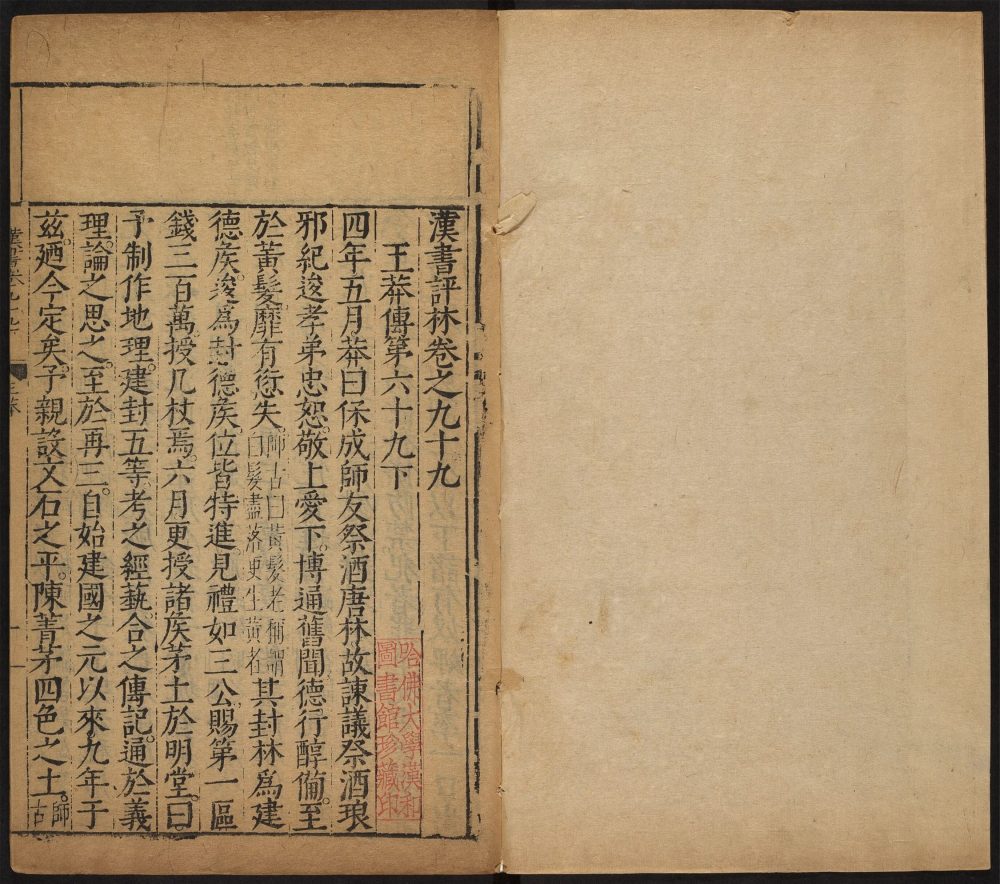 漢書評林卷之九十九
王莽傳第六十九下
四年五月莽曰保成師友祭酒唐林故諫議祭酒琅
邪紀逡孝弟忠恕敬上愛下博通舊聞德行醇備至
於黃髮靡有愆失師古曰黃髮老稱謂白髮盡落更生黃者其封林爲建
德侯逡爲封德侯位皆特進見禮如三公賜第一區
錢三百萬授几杖焉六月更授諸侯茅土於明堂曰
予制作地理建封五等考之經藝合之傳記通於義
理論之思之至於再三自始建國之元以來九年于
茲廼今定矣予親設文石之平陳菁茅四色之土師古
哈佛大學漢和
圖書館珍藏印